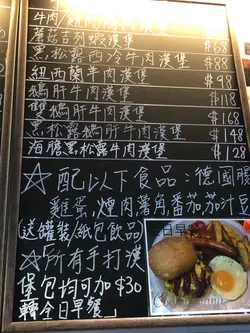 牛肉/雞肉/豚肉漢堡
蘑菇吉列蝦漢堡 $68
黑松露西冷牛肉漢堡 $88
紐西蘭羊肉漢堡 $98
鵝肝牛肉漢堡 $118
雙鵝肝牛肉漢堡 $168
黑松露鵝肝牛肉漢堡 $148
海膽黑松露牛肉漢堡 $128
☆配以下食品:德國腸
雞蛋,煙肉,薯角,番茄,茄汁豆
(送罐裝/紙包飲品)
☆所有手打漢
堡包均可加 $30
轉全日早餐」
日早餐